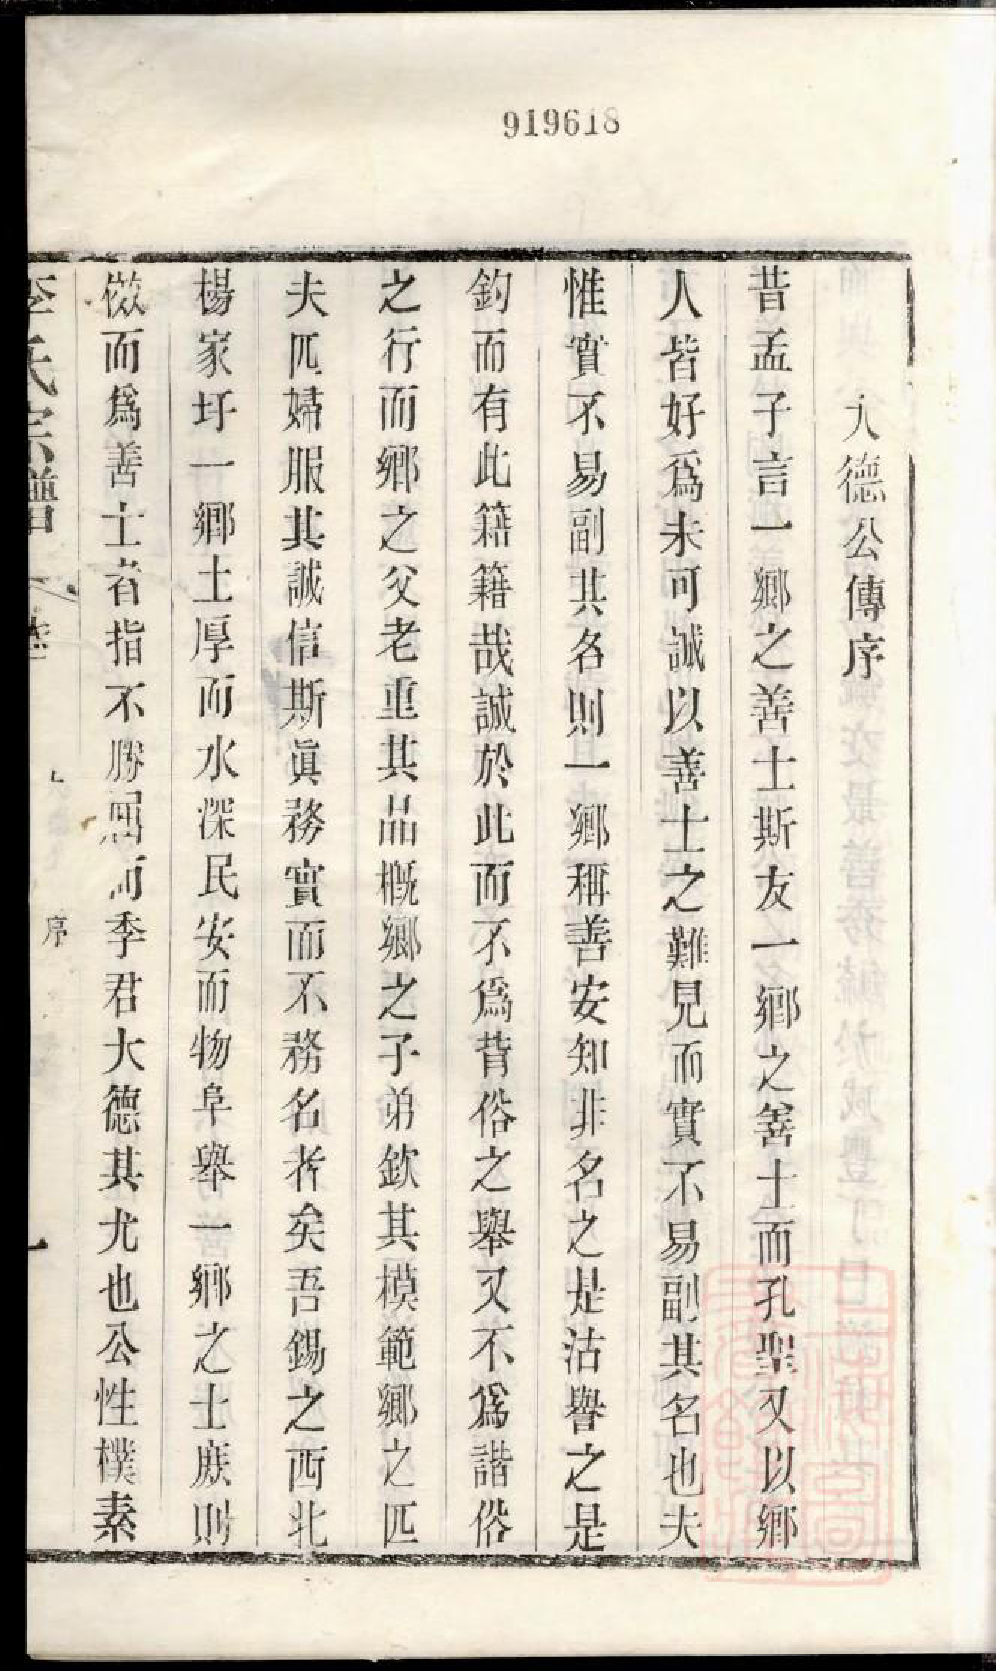 919618
大德公傳序
昔孟子言一鄉之善士斯友一鄉之善士而孔聖又以鄉
人皆好爲未可誠以善士之難見而實不易副其名也夫
惟實不易副其名則一鄉稱善安知非名之是沽譽之是
鈞而有此籍籍哉誠於此而不爲背俗之舉又不爲諧俗
之行而鄉之父老重其品槪鄉之子弟欽其模範鄉之匹
夫匹婦服其誠信斯眞務實而不務名者矣吾錫之西北
楊家圩一鄉土厚而水深民安而物阜舉一鄉之士庶則
傚而爲善士者指不勝屈而季君大德其尤也公性樸素
季氏宗譜 序 一